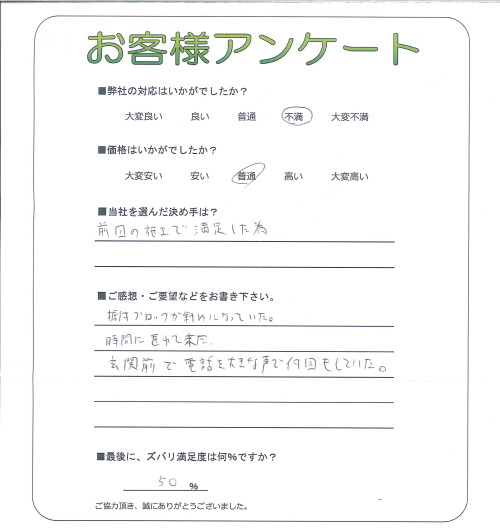 お客様アンケート
■弊社の対応はいかがでしたか？
大変良い 良い 普通 不満 大変不満
■価格はいかがでしたか？
大変安い 安い 普通 高い 大変高い
■当社を選んだ決め手は？
前回の施工で満足した為
■ご感想・ご要望などをお書き下さい。
据付ブロックが斜めになっていた。
時間に遅れて来た。
玄関前で電話を大きな声で何回もしていた。
■最後に、ズバリ満足度は何%ですか？
50 %
ご協力頂き、誠にありがとうございました。